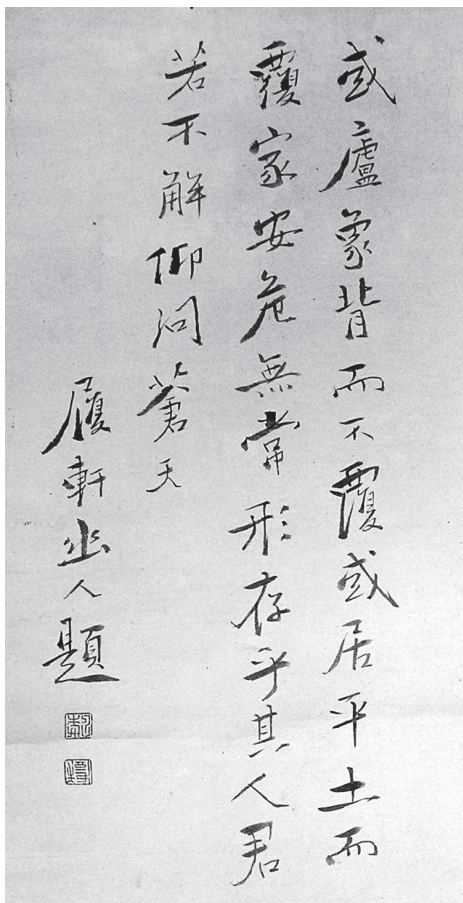 或廬象背而不覆或居平土而
覆家安危無常形存乎其人君
若不解仰問蒼天
履軒幽人題